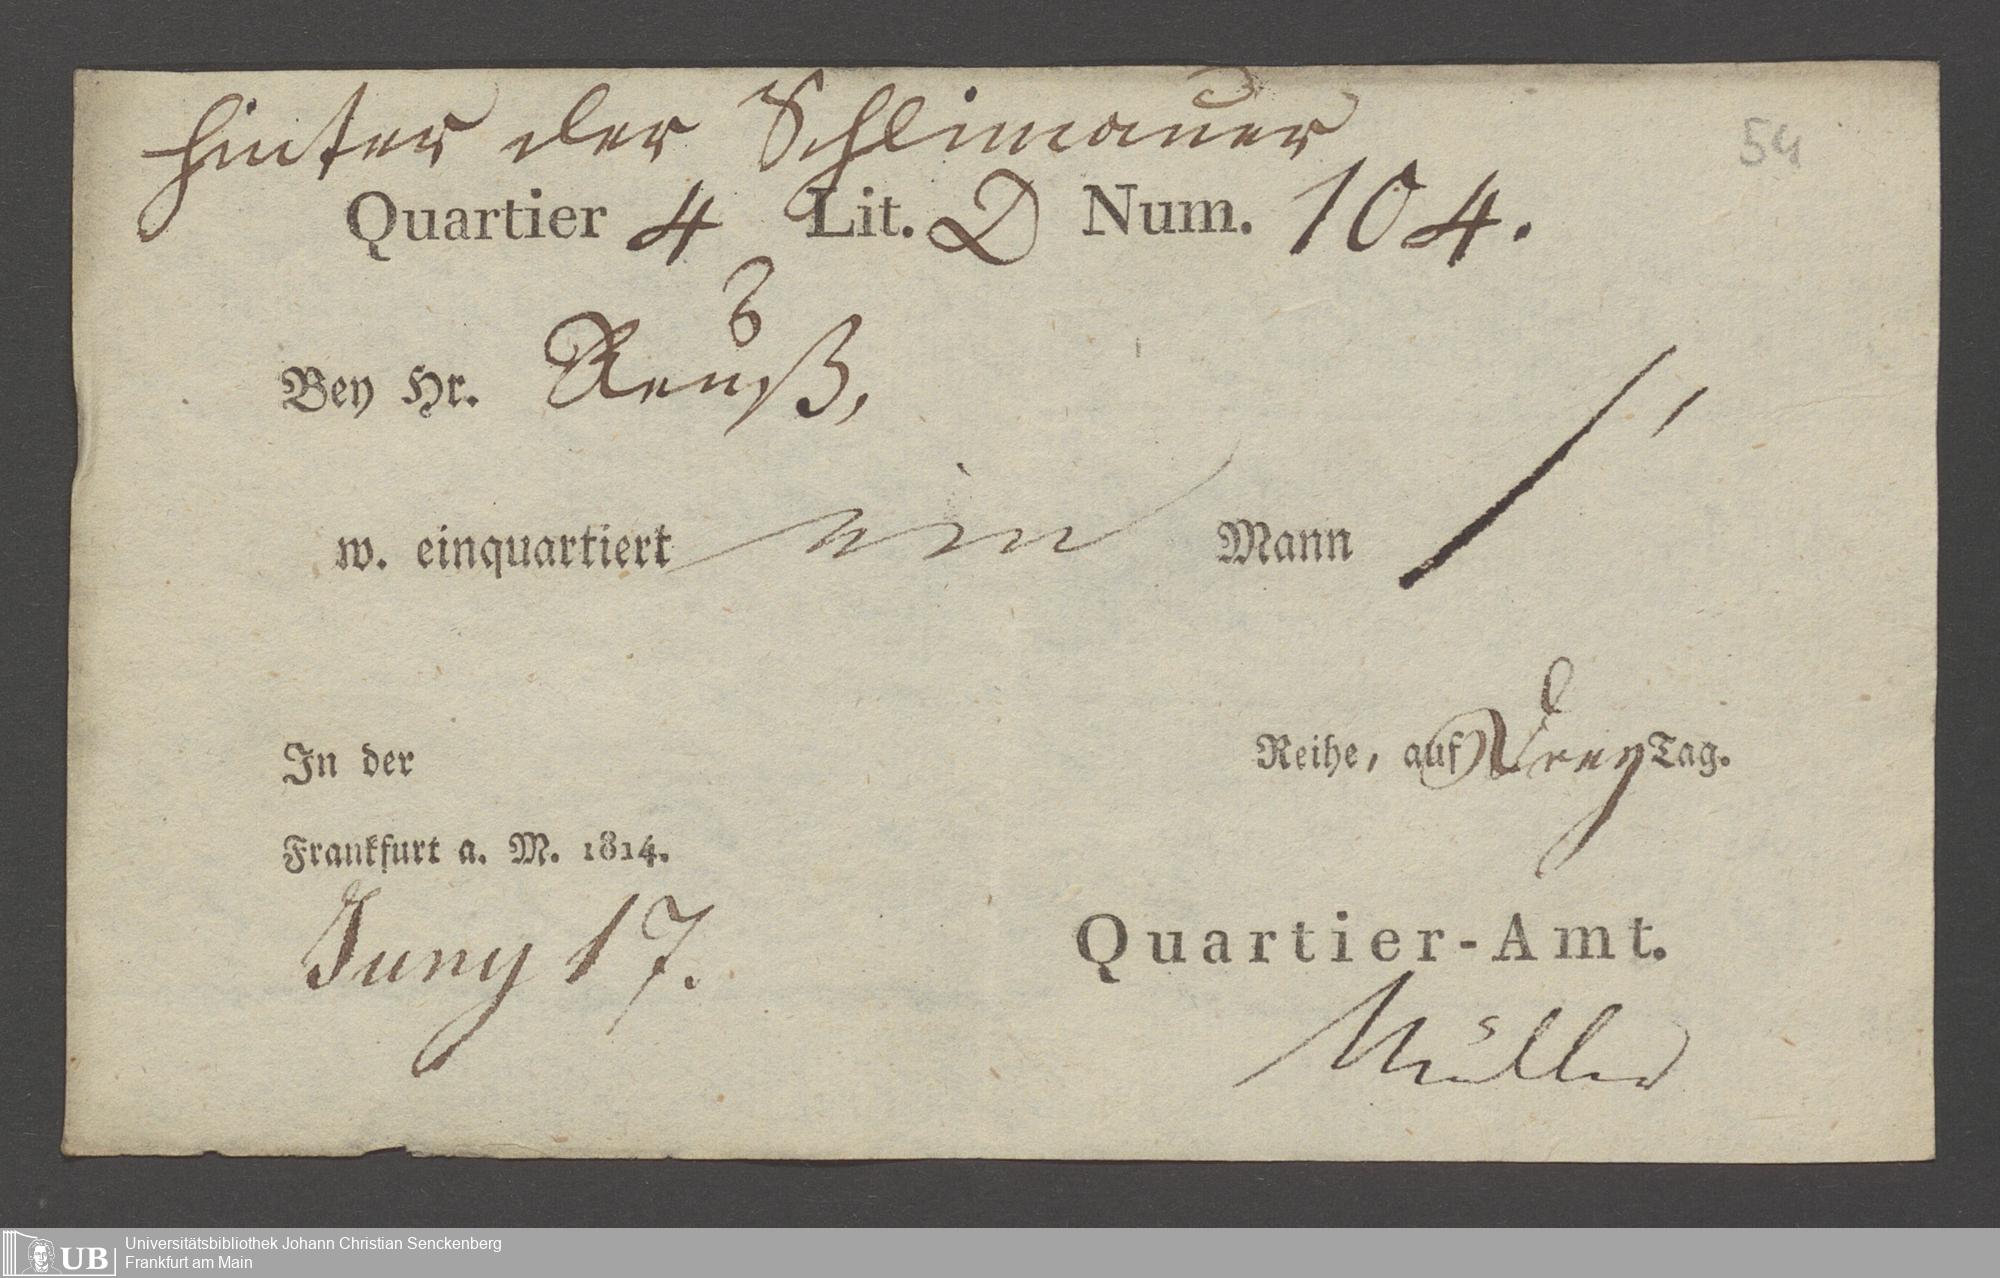 hinter der Schlimauer
54
Quartier 4 Lit. D Num. 104.
Bey Hr. Reuß,
w. einquartiert ein Mann 1
In der Reihe, auf Drey Tag.
Frankfurt a. M. 1814.
Juny 17.
Quartier-Amt.
Müller
UB Universitätsbibliothek Johann Christian Senckenberg
Frankfurt am Main